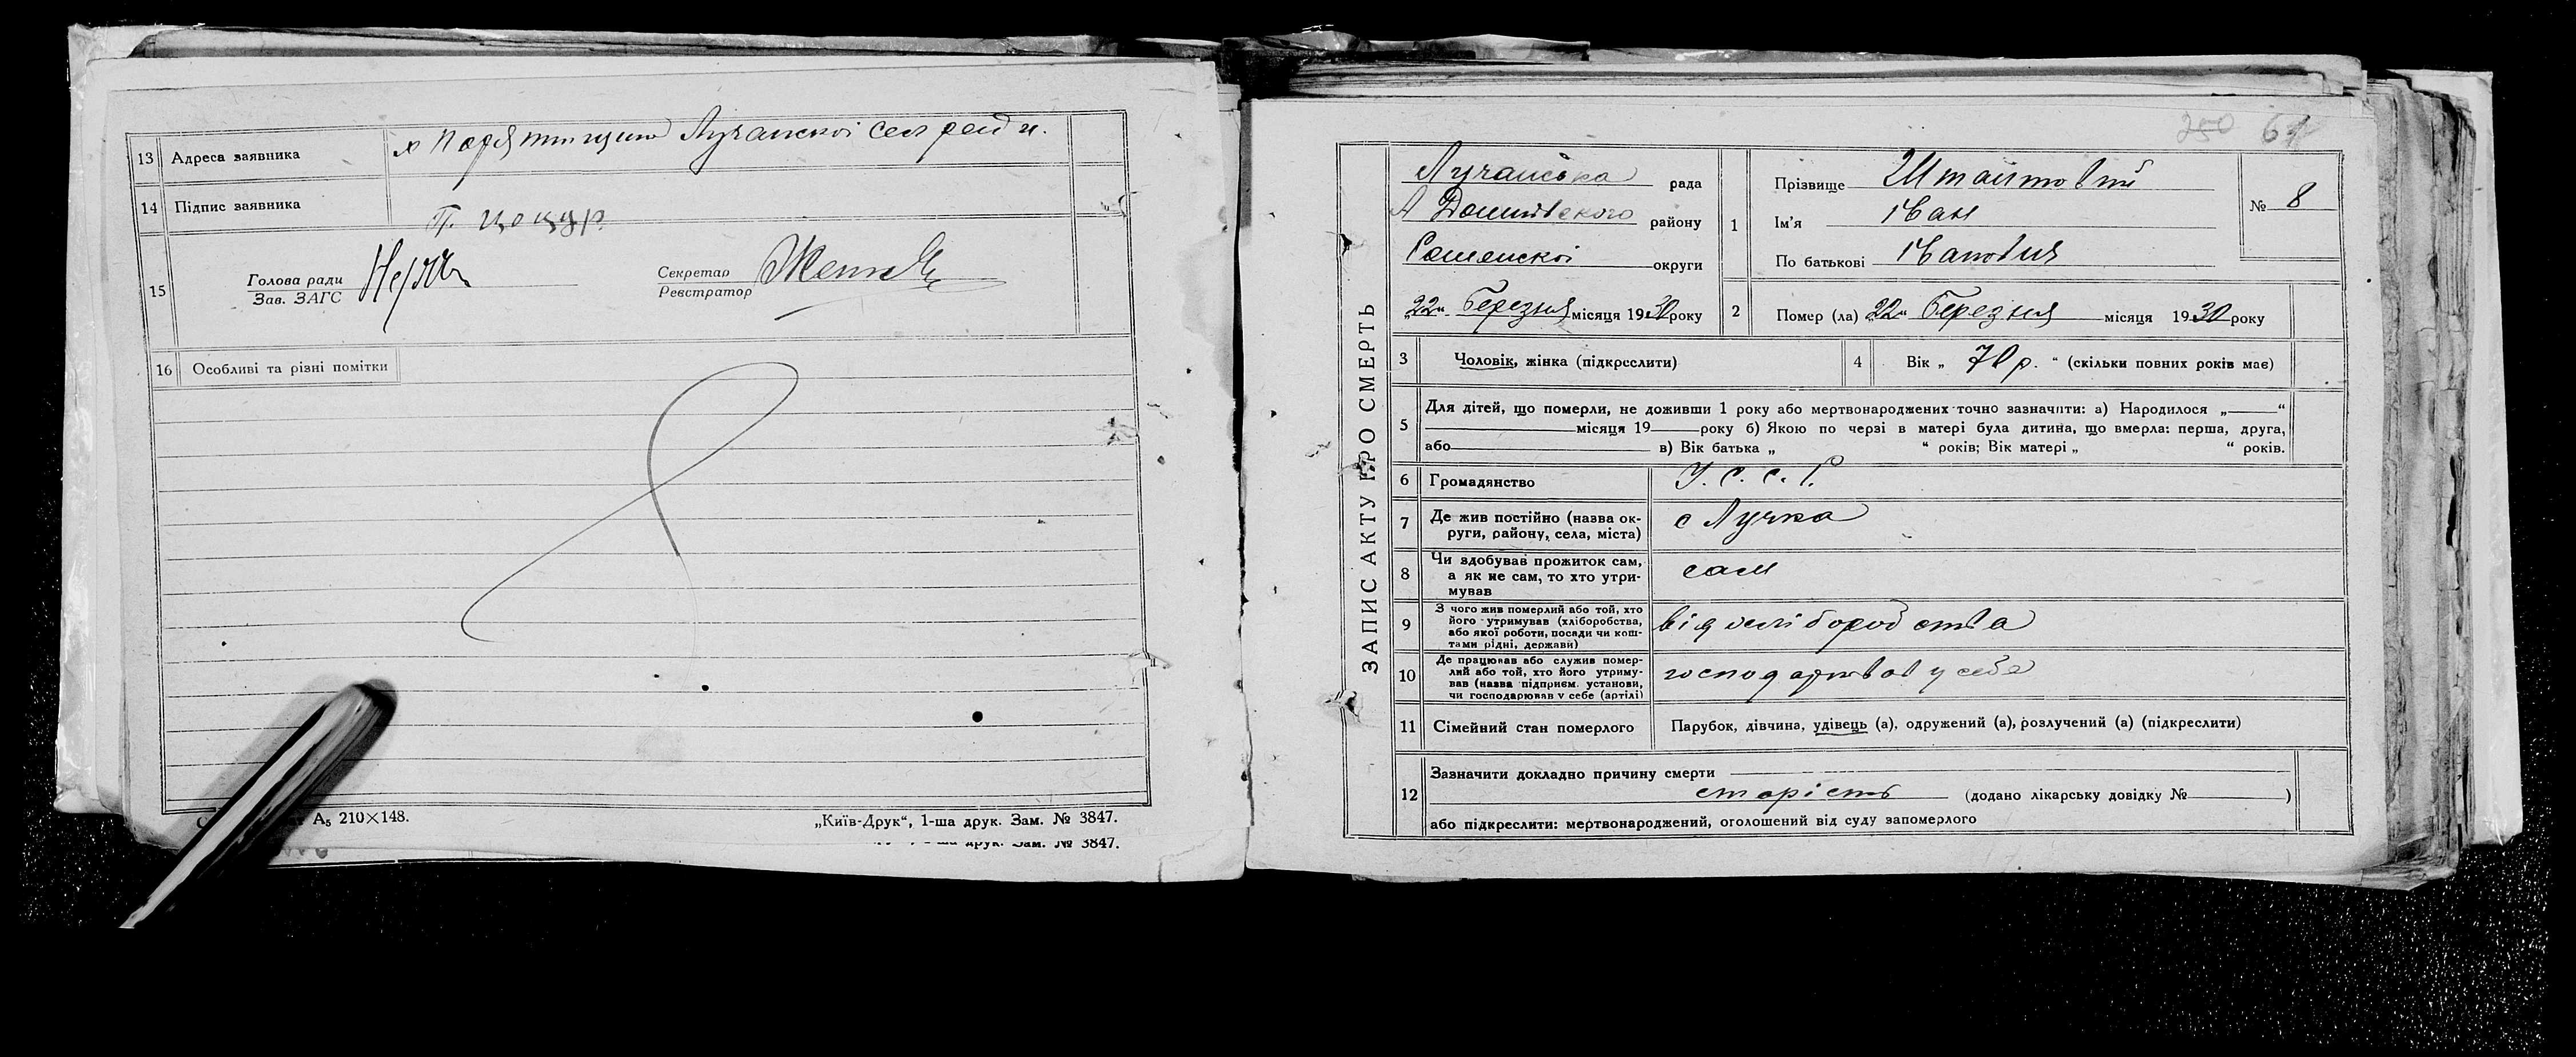 13 Адреса заявника х Лучанської сел ради.
14 Підпис заявника П. Коцур
15 Голова ради
Зав. ЗАГС
Секретар
Реєстратор
16 Особливі та різні помітки
А₅ 210×148.
„Київ-Друк“, 1-ша друк. Зам. № 3847.
друк. Зам. № 3847.
250 61
ЗАПИС АКТУ ПРО СМЕРТЬ
Лучанська рада
району
Роменської округи
„22“ Березня місяця 1930 року
1 Прізвище
Ім'я Іван
По батькові Іванович
№ 8
2 Помер (ла) „22“ Березня місяця 1930 року
3 Чоловік, жінка (підкреслити)
4 Вік „ 70 р. “ (скільки повних років має)
5 Для дітей, що померли, не доживши 1 року або мертвонароджених точно зазначити: а) Народилося „ “
місяця 19 року б) Якою по черзі в матері була дитина, що вмерла: перша, друга,
або в) Вік батька „ “ років; Вік матері „ “ років.
6 Громадянство У. С. С. Р.
7 Де жив постійно (назва ок-
руги, району, села, міста) с Лучка
8 Чи здобував прожиток сам,
а як не сам, то хто утри-
мував сам
9 З чого жив померлий або той, хто
його утримував (хліборобства,
або якої роботи, посади чи кош-
тами рідні, держави) від хліборобства
10 Де працював або служив помер-
лий або той, хто його утриму-
вав (назва підприєм. установи,
чи господарював у себе (артілі) господарював у себе
11 Сімейний стан померлого Парубок, дівчина, удівець (а), одружений (а), розлучений (а) (підкреслити)
12 Зазначити докладно причину смерти
старість (додано лікарську довідку № )
або підкреслити: мертвонароджений, оголошений від суду запомерлого